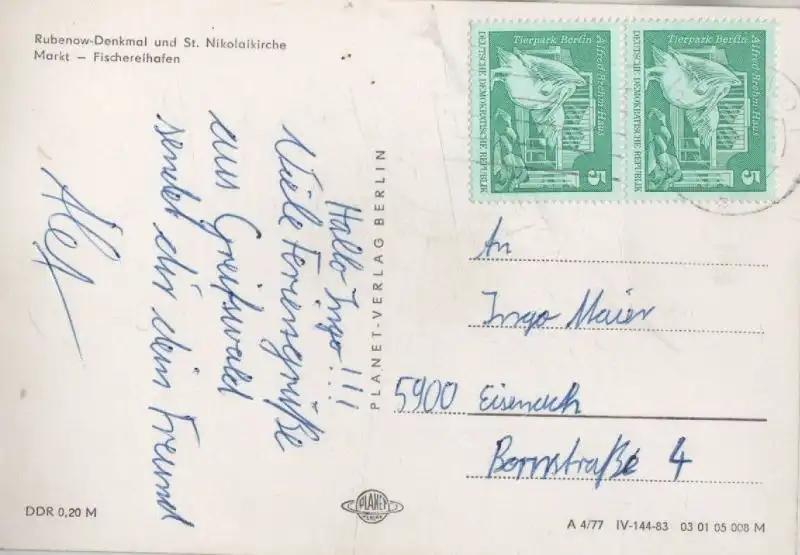 Rubenow-Denkmal und St. Nikolaikirche
Markt – Fischereihafen
Hallo Ingo!!!
Viele Feriengrüße
aus Greifswald
sendet dir dein Freund
PLANET-VERLAG BERLIN
DDR 0,20 M
PLANET
Tierpark Berlin
Alfred Brehm Haus
DEUTSCHE DEMOKRATISCHE REPUBLIK
5
Tierpark Berlin
Alfred Brehm Haus
DEUTSCHE DEMOKRATISCHE REPUBLIK
5
An
Ingo Maier
5900 Eisenach
Bornstraße 4
A 4/77 IV-144-83 03 01 05 008 M